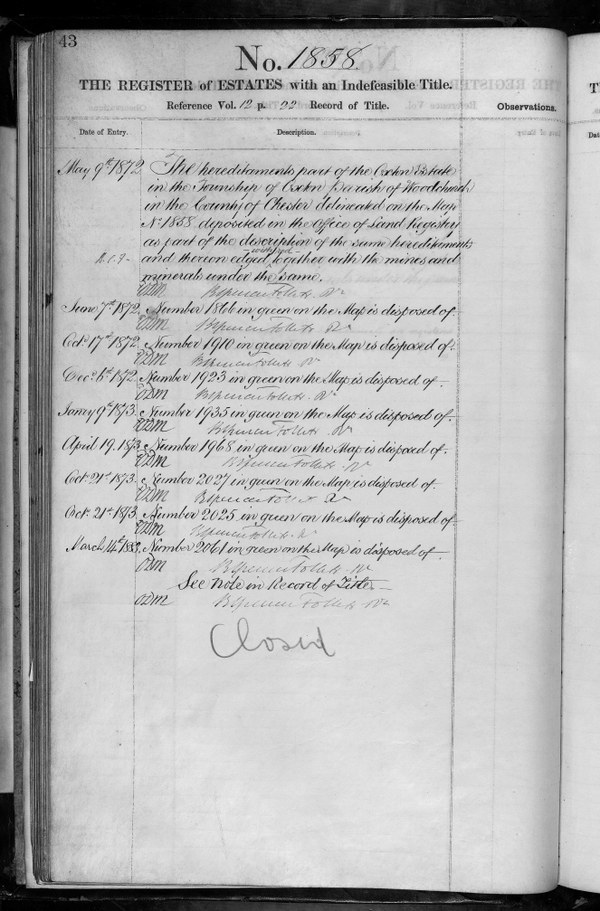 43
No. 1858
THE REGISTER of ESTATES with an Indefeasible Title.
Reference Vol. 12 p. 92 Record of Title.
Observations.
Date of Entry.
Description.
May 9th 1872 The hereditaments part of the Oxton Estate
in the Township of Oxton Parish of Woodchurch
in the County of Chester delineated on the Map
No 1858 deposited in the Office of Land Registry
as part of the description of the same hereditaments
and thereon edged with red together with the mines and
minerals under the same.
ODM Bspencer Follett Rr
June 7th 1872 Number 1866 in green on the Map is disposed of.
ODM Bspencer Follett Rr
Octr 17th 1872 Number 1910 in green on the Map is disposed of.
ODM Bspencer Follett Rr
Decr 6th 1872 Number 1923 in green on the Map is disposed of.
ODM Bspencer Follett Rr
Janry 9th 1873 Number 1935 in green on the Map is disposed of.
ODM Bspencer Follett Rr
April 19. 1873 Number 1968 in green on the Map is disposed of.
ODM Bspencer Follett Rr
Oct. 21st 1873 Number 2027 in green on the Map is disposed of.
ODM Bspencer Follett Rr
Oct. 21st 1873 Number 2025 in green on the Map is disposed of.
ODM Bspencer Follett Rr
March 14th Number 2061 in green on the Map is disposed of.
ODM Bspencer Follett Rr
See Note in Record of Title
ODM Bspencer Follett Rr
Closed